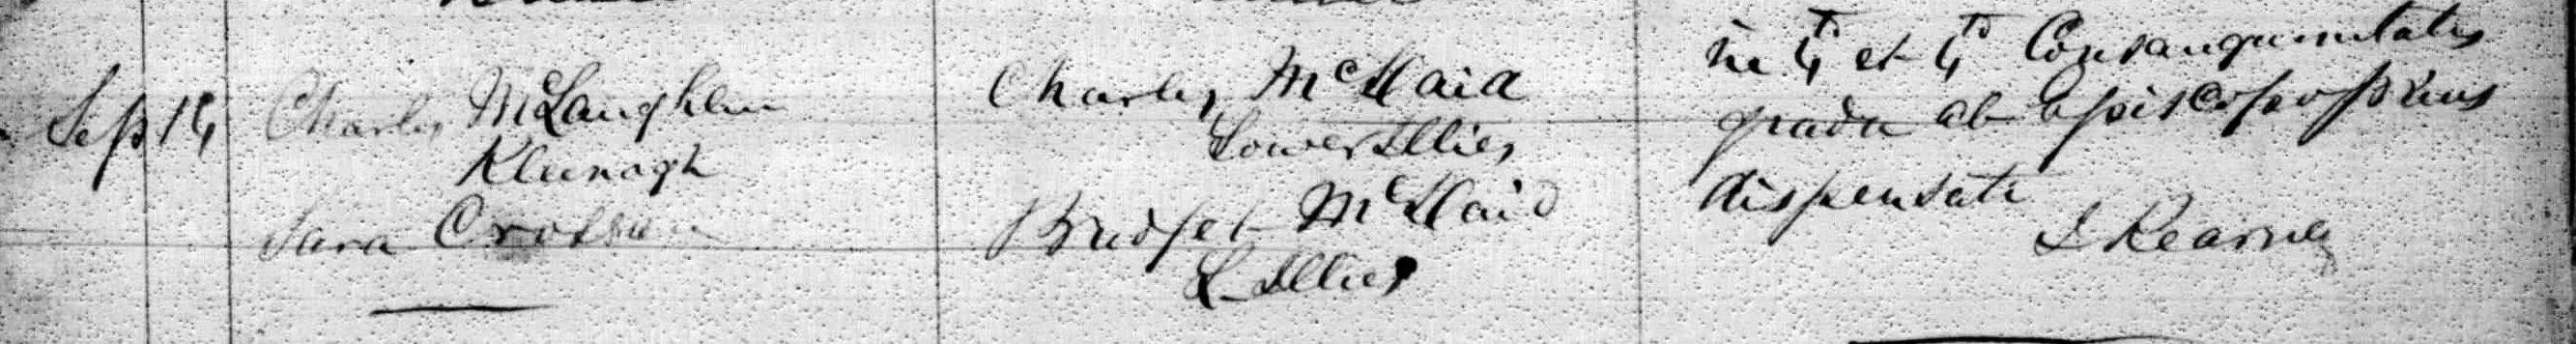 Sep 14
Charles McLaughlin
Klunagh
Sara Crossan
Charles McDaid
Lower Illies
Bridget McDaid
L Illies
in 4to et 4to Consanguinitatis
gradu ab Episcopo prius
dispensati
J Kearney